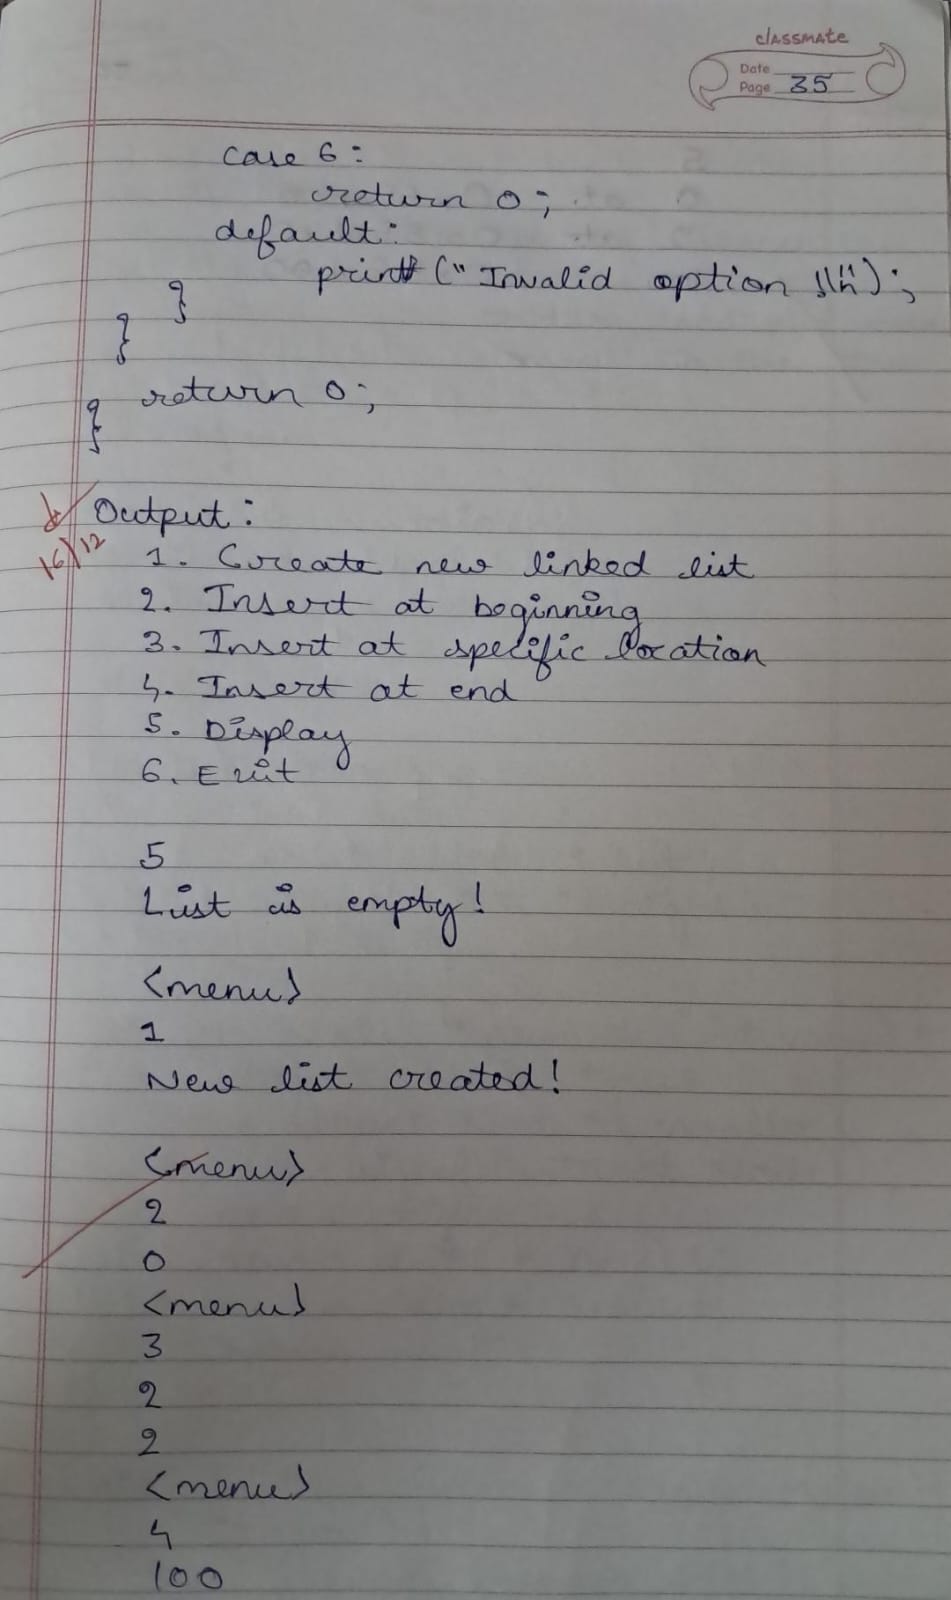 classmate
Date
Page 35
case 6:
return 0;
default:
printf("Invalid option !\n");
}
}
return 0;
}
Output:
16/12
1. Create new linked list
2. Insert at beginning
3. Insert at specific location
4. Insert at end
5. Display
6. Exit
5
List is empty!
<menu>
1
New list created!
<menu>
2
0
<menu>
3
2
2
<menu>
4
100